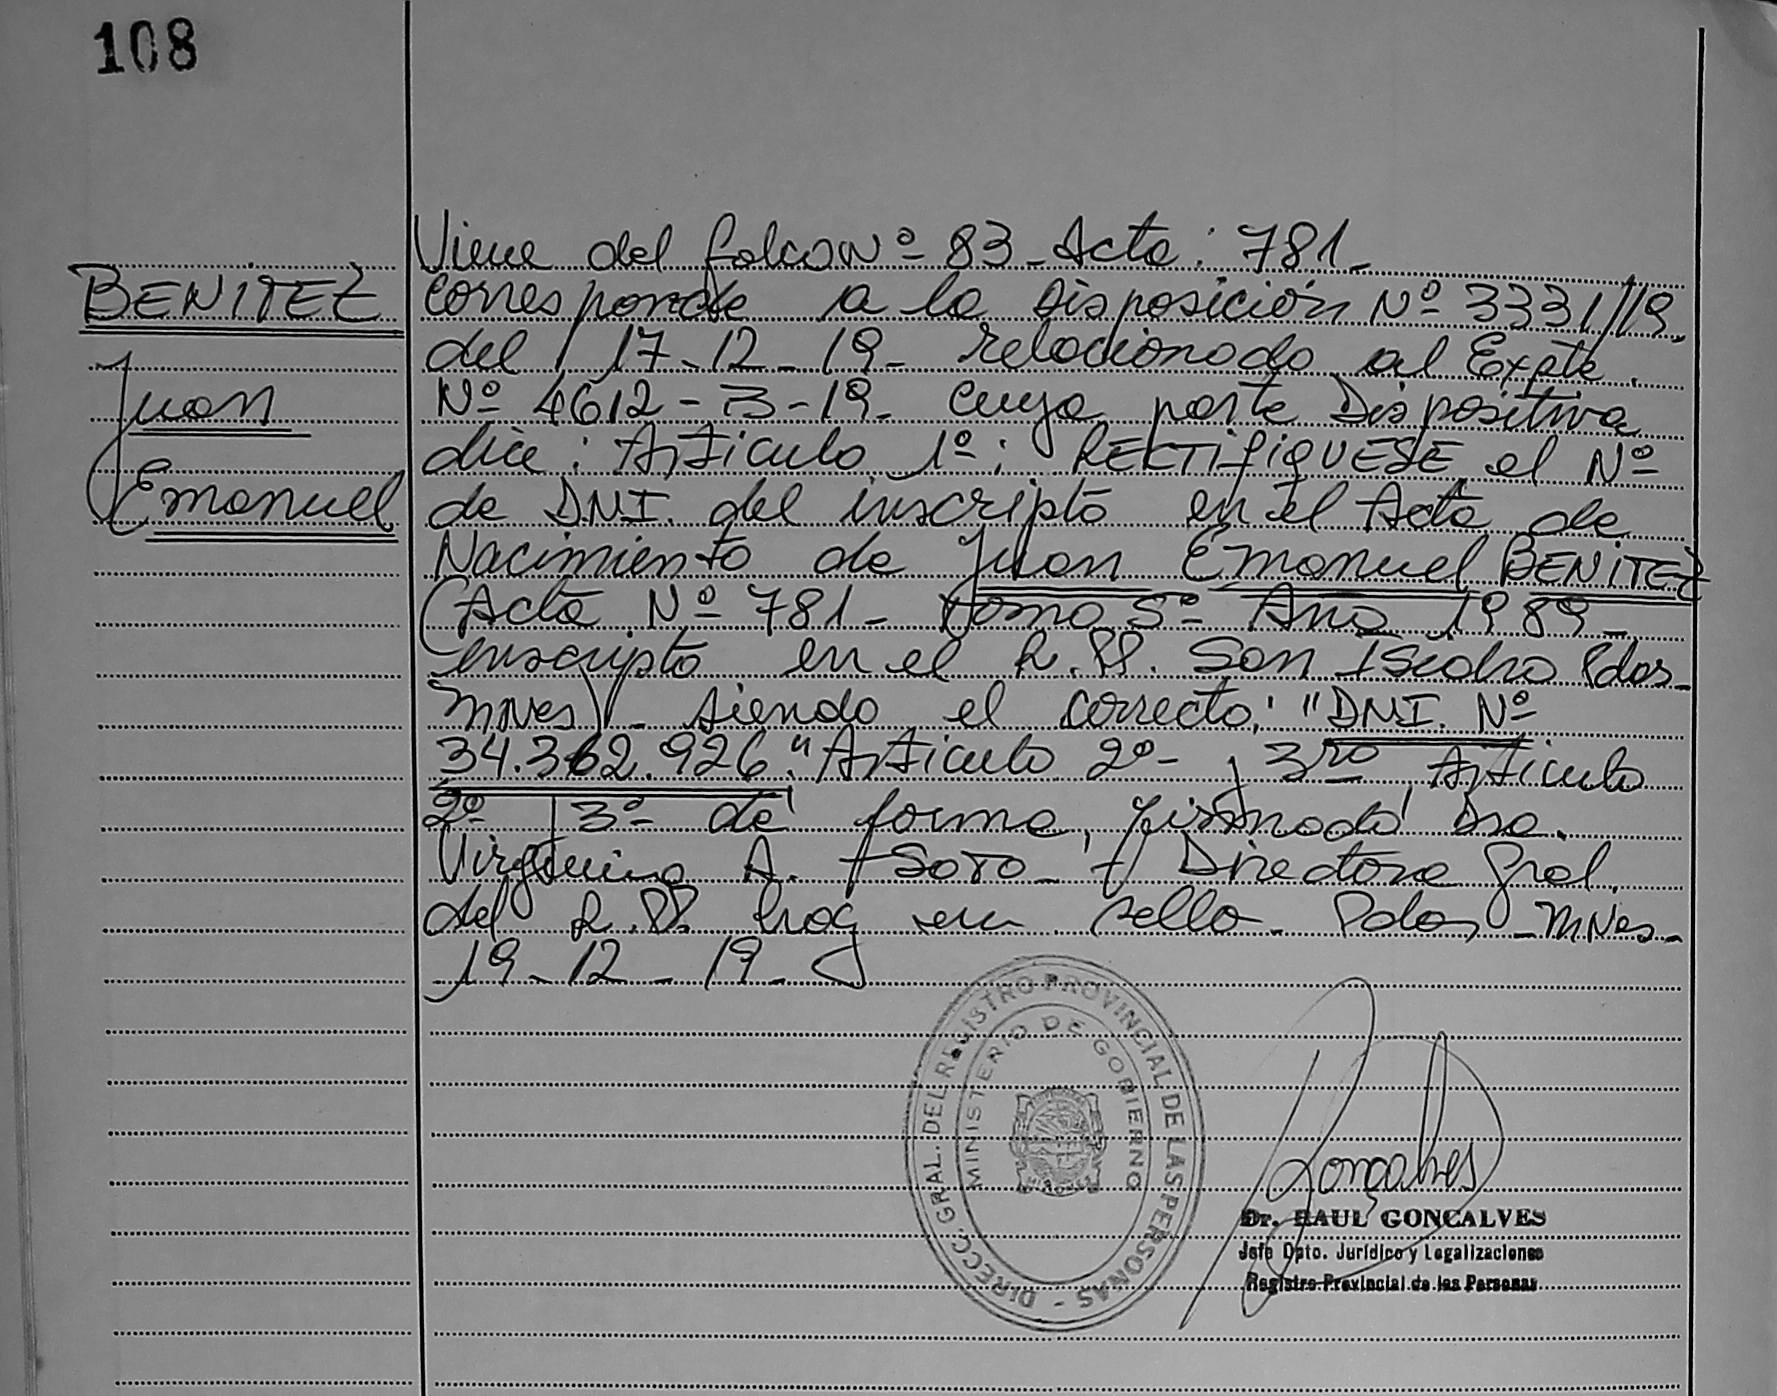 108
BENITEZ
Juan
Emanuel
Viene del folio Nº 83 - Acta: 781 -
corresponde a la Disposición Nº 3331/19
del 17-12-19- relacionado al Expte.
Nº 4612-B-19- cuya parte Dispositiva
dice: Articulo 1º: RECTIFIQUESE el Nº
de DNI. del inscripto en el Acta de
Nacimiento de Juan Emanuel BENITEZ
(Acta Nº 781- tomo 5º Año 1989-
inscripto en el R.PP. San Isidro Pdas-
Mnes) - siendo el correcto: "DNI. Nº
34.362.926." Articulo 2º- y 3ro Articulo
2º y 3º de forma, firmado Dra.
Virginia A. SOTO - Directora Gral.
del R.PP. hay un sello - Pdas - Mnes-
19-12-19-
DIRECC. GRAL. DEL REGISTRO PROVINCIAL DE LAS PERSONAS -
MINISTERIO DE GOBIERNO
Gonçalves
Dr. RAUL GONCALVES
Jefe Dpto. Jurídico y Legalizaciones
Registro Provincial de las Personas